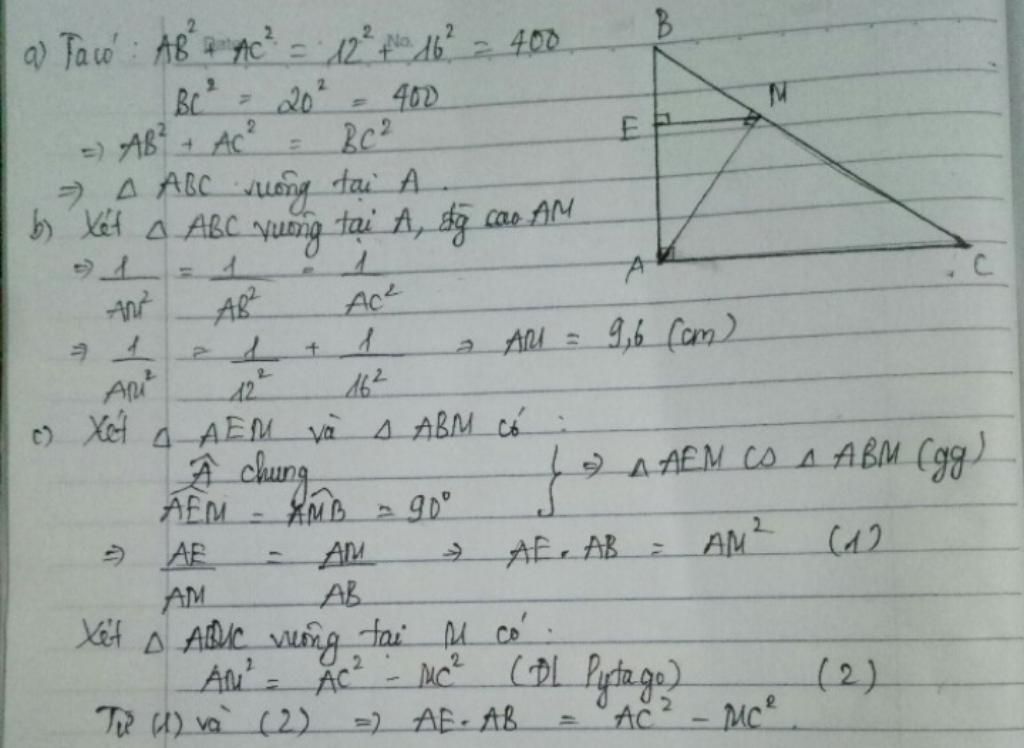 a) Ta có : AB² + AC² = 12² + 16² = 400
BC² = 20² = 400
=> AB² + AC² = BC²
=> △ ABC vuông tại A.
b) Xét △ ABC vuông tại A, đg cao AM
=> 1/AM² = 1/AB² = 1/AC²
=> 1/AM² = 1/12² + 1/16² => AM = 9,6 (cm)
c) Xét △ AEM và △ ABM có :
Â chung
AEM = AMB = 90° } => △ AEM ∽ △ ABM (gg)
=> AE/AM = AM/AB => AE . AB = AM² (1)
Xét △ AMC vuông tại M có :
AM² = AC² - MC² (Đl Pytago) (2)
Từ (1) và (2) => AE . AB = AC² - MC².
B
M
E
A
C